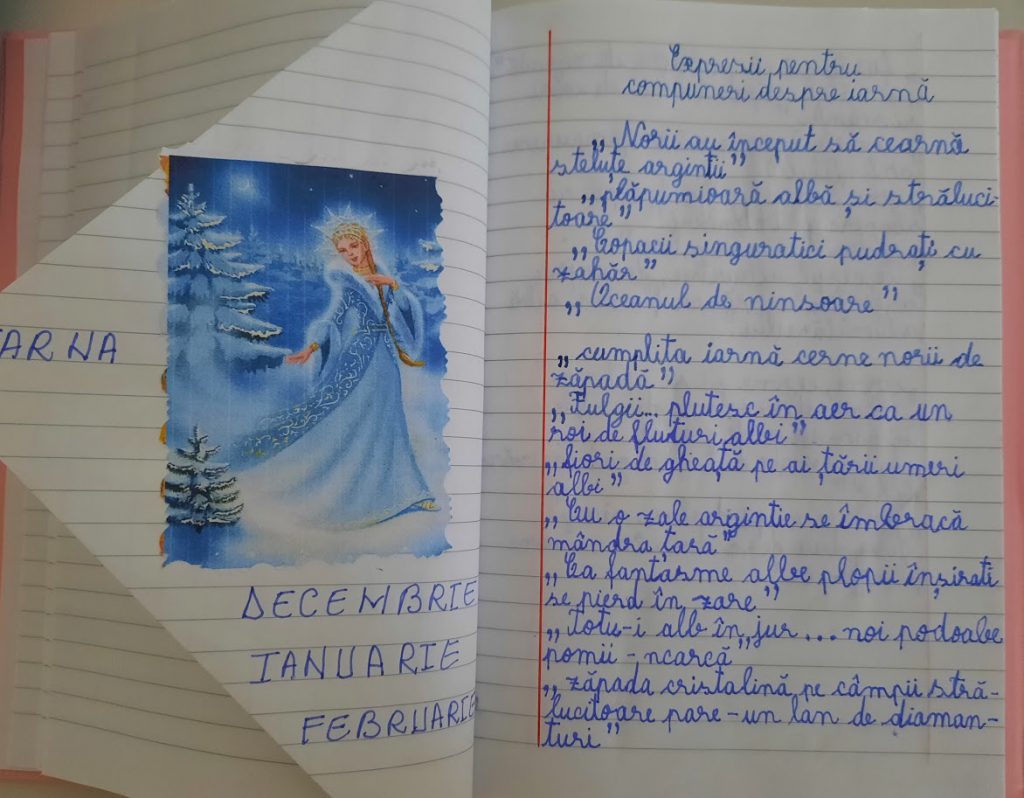 ARNA
DECEMBRIE
IANUARIE
FEBRUARIE
Expresii pentru
compuneri despre iarnă
„Norii au început să cearnă
steluțe argintii”
„plăpumioară albă și străluci-
toare”
„Copacii singuratici pudrați cu
zahăr”
„Oceanul de ninsoare”
„cumplita iarnă cerne norii de
zăpadă”
„Fulgii... plutesc în aer ca un
roi de fluturi albi”
„fiori de gheață pe ai țării umeri
albi”
„Cu o zale argintie se îmbracă
mândra țară”
„Ca fantasme albe plopii înșirați
se pierd în zare”
„Totu-i alb în jur... noi podoabe
pomii-ncarcă”
„zăpada cristalină pe câmpii stră-
lucitoare pare-un lan de diaman-
turi”